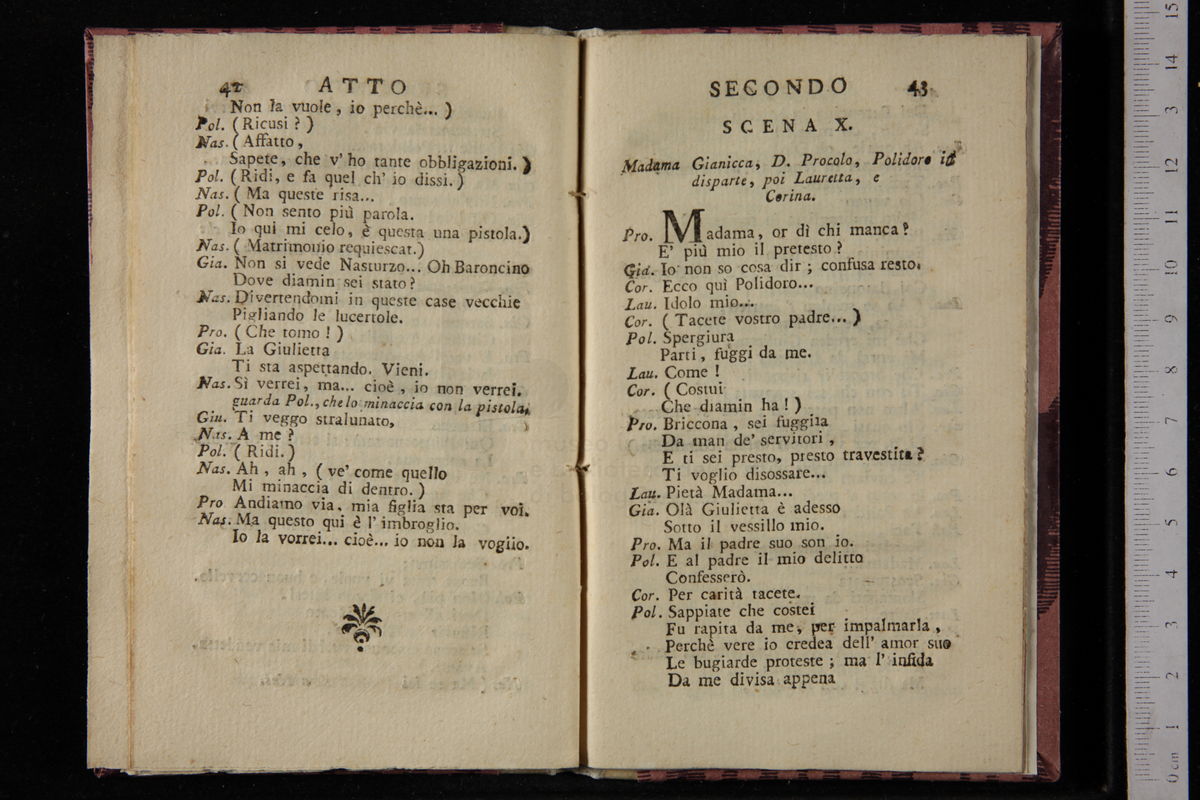 42 ATTO
Non la vuole, io perchè... )
Pol. ( Ricusi ? )
Nas. ( Affatto,
Sapete, che v' ho tante obbligazioni. )
Pol. ( Ridi, e fa quel ch' io dissi. )
Nas. ( Ma queste risa...
Pol. ( Non sento più parola.
Io qui mi celo, è questa una pistola.)
Nas. ( Matrimonio requiescat.)
Gia. Non si vede Nasturzo... Oh Baroncino
Dove diamin sei stato?
Nas. Divertendomi in queste case vecchie
Pigliando le lucertole.
Pro. ( Che tomo ! )
Gia. La Giulietta
Ti sta aspettando. Vieni.
Nas. Sì verrei, ma... cioè, io non verrei.
guarda Pol., che lo minaccia con la pistola.
Giu. Ti veggo stralunato,
Nas. A me ?
Pol. ( Ridi.)
Nas. Ah, ah, ( ve' come quello
Mi minaccia di dentro. )
Pro Andiamo via, mia figlia sta per voi.
Nas. Ma questo qui è l' imbroglio.
Io la vorrei... cioè... io non la voglio.
SECONDO 43
SCENA X.
Madama Gianicca, D. Procolo, Polidoro in
disparte, poi Lauretta, e
Corina.
Pro. Madama, or dì chi manca?
E' più mio il pretesto?
Gia. Io non so cosa dir ; confusa resto.
Cor. Ecco quì Polidoro...
Lau. Idolo mio...
Cor. ( Tacete vostro padre... )
Pol. Spergiura
Parti, fuggi da me.
Lau. Come !
Cor. ( Costui
Che diamin ha ! )
Pro. Briccona, sei fuggita
Da man de' servitori,
E ti sei presto, presto travestita?
Ti voglio disossare...
Lau. Pietà Madama...
Gia. Olà Giulietta è adesso
Sotto il vessillo mio.
Pro. Ma il padre suo son io.
Pol. E al padre il mio delitto
Confesserò.
Cor. Per carità tacete.
Pol. Sappiate che costei
Fu rapita da me, per impalmarla,
Perchè vere io credea dell' amor suo
Le bugiarde proteste ; ma l' infida
Da me divisa appena
15
14
13
12
11
10
9
8
7
6
5
4
3
2
1
0 cm